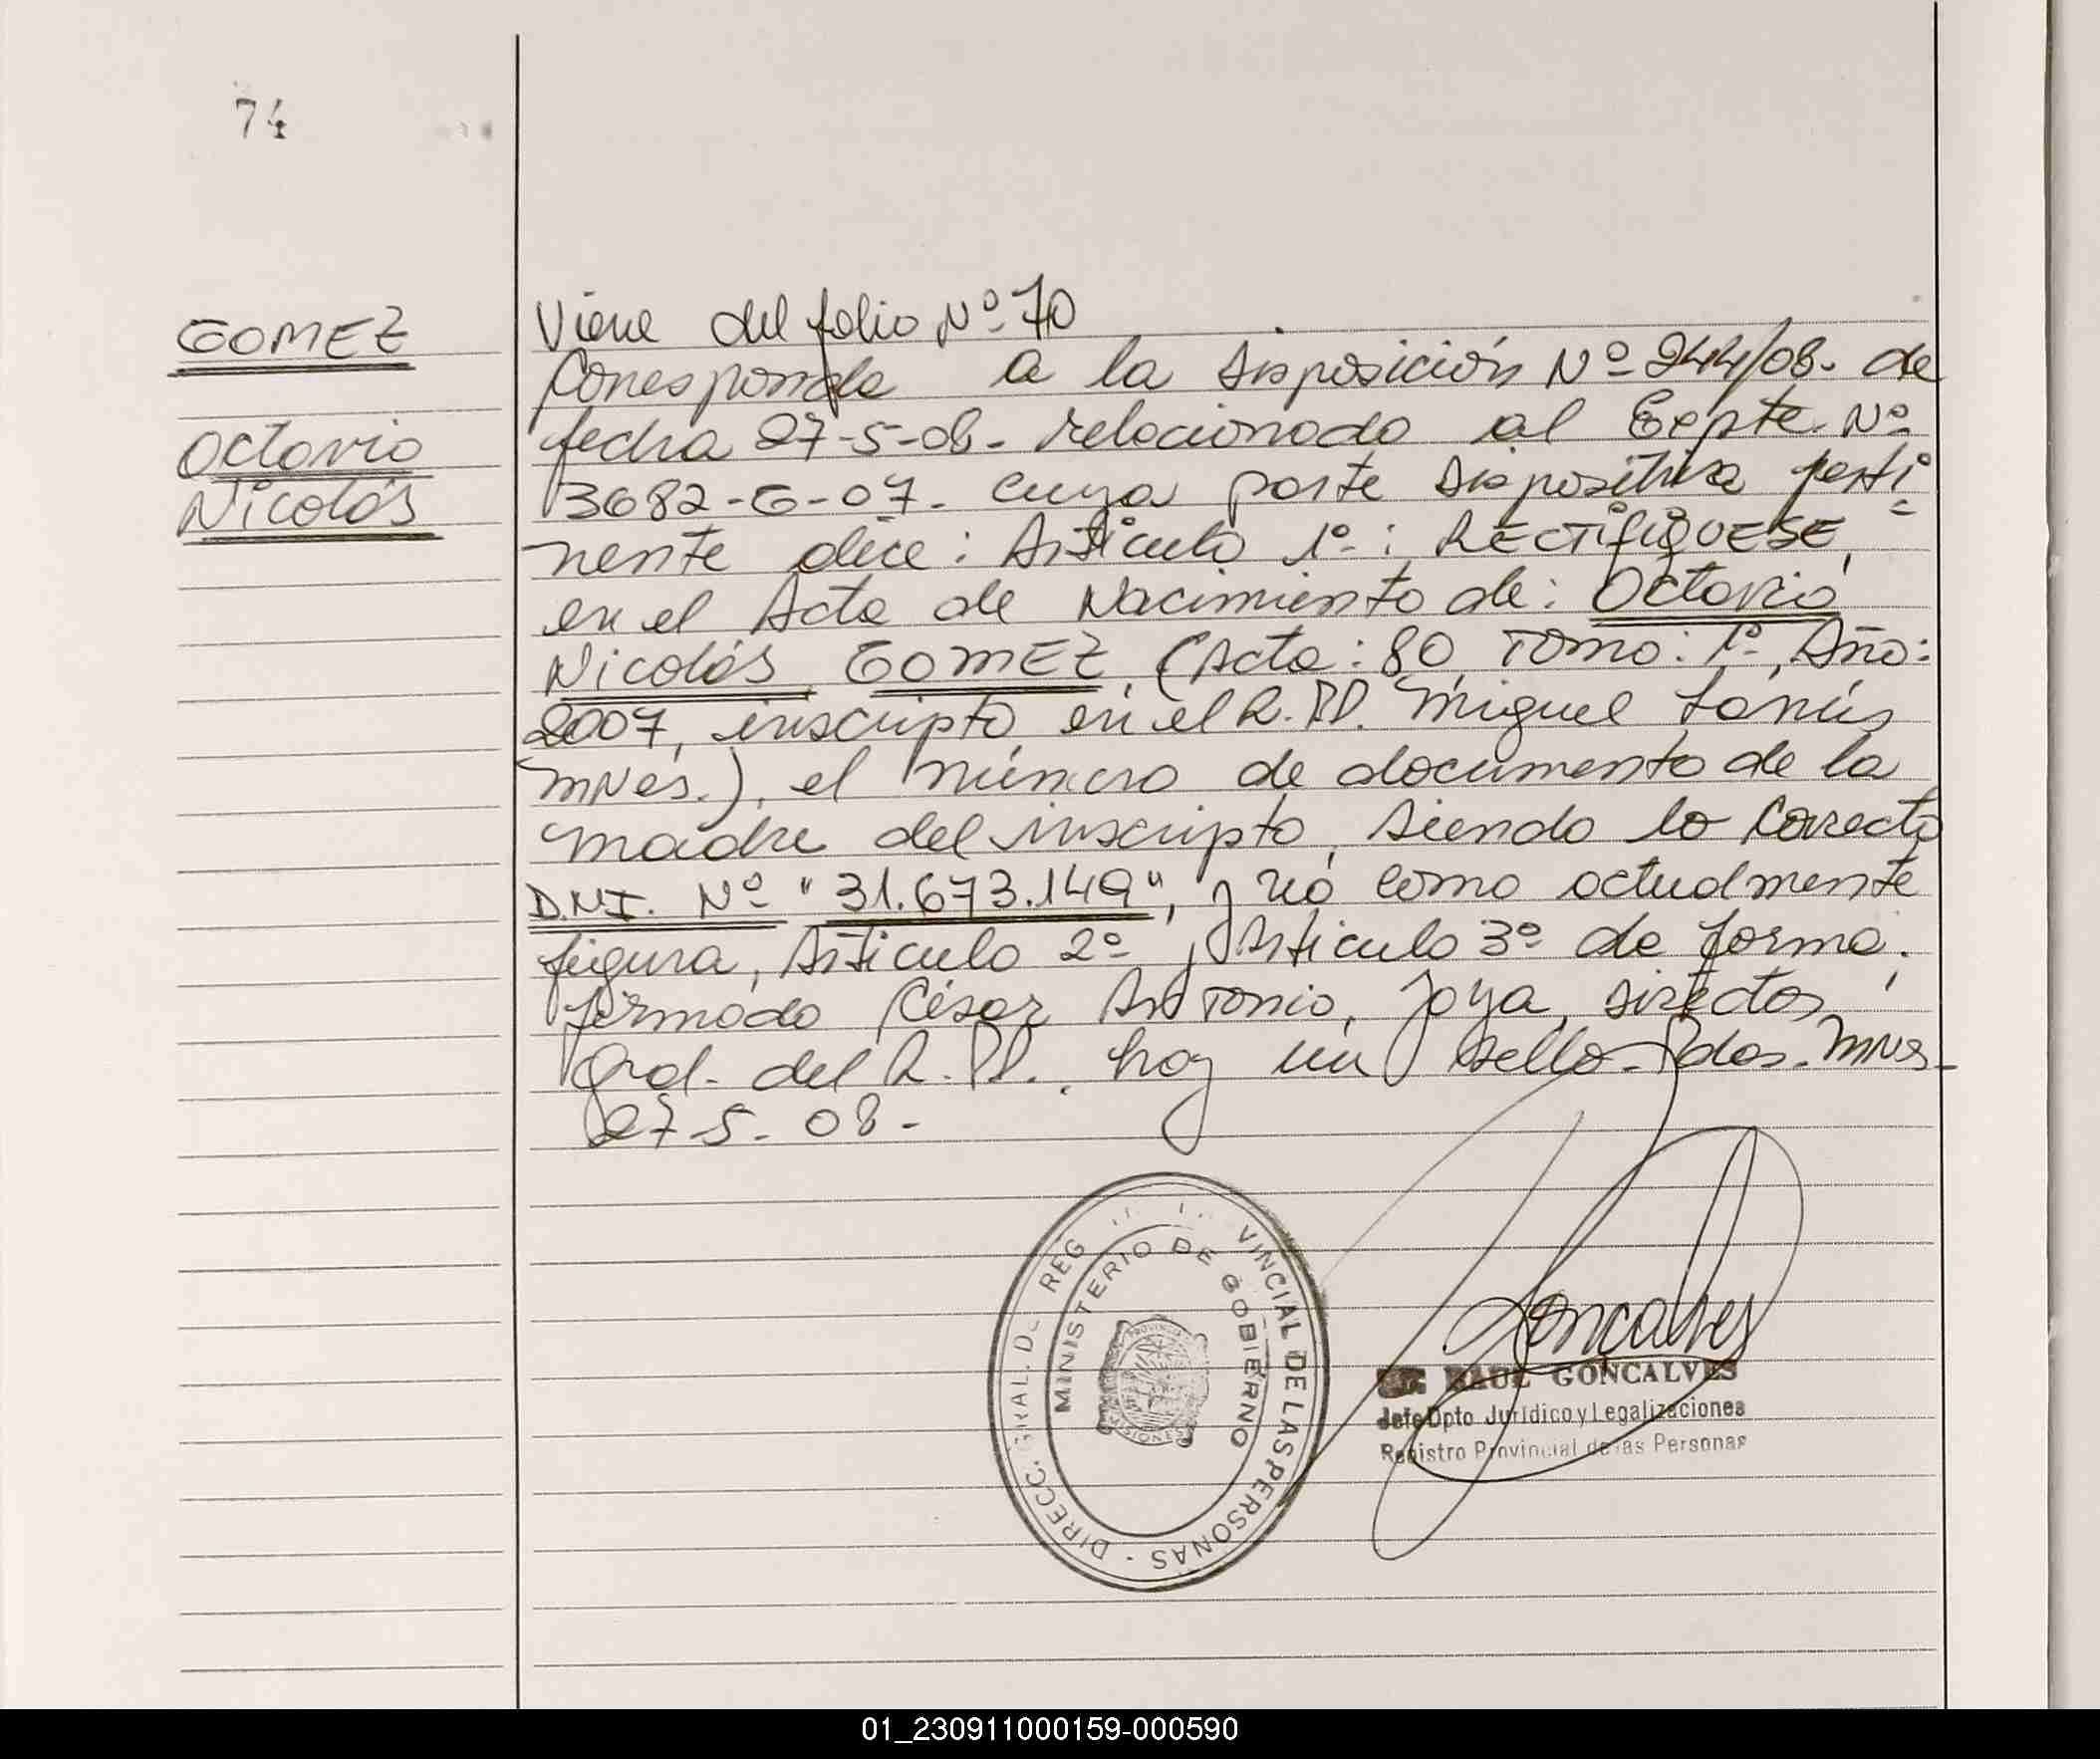 74
GOMEZ
Octavio
Nicolás
Viene del folio Nº 70
Corresponde a la Disposición Nº 244/08. de
fecha 27-5-08. relacionado al Expte. Nº
3682-G-07. cuya parte Dispositiva perti
nente dice: Artículo 1º: RECTIFIQUESE,
en el Acta de Nacimiento de: Octavio
Nicolás GOMEZ, (Acta: 80, Tomo: 1º, Año:
2007, inscripto en el R.PP. Miguel Lanús
MNes.), el número de documento de la
madre del inscripto, siendo lo correcto
D.N.I. Nº "31.673.149", y no como actualmente
figura, Artículo 2º y Artículo 3º de forma.
firmado César Antonio, Joya, Director
Gral. del R.PP.. hay un sello. Pdas. MNS-
27-5-08-
DIRECC. GRAL. DE REG VINCIAL DE LAS PERSONAS -
MINISTERIO DE GOBIERNO
PROVINCIA
MISIONES
Goncalves
RAUL GONCALVES
Jefe Dpto Jurídico y Legalizaciones
Registro Provincial de las Personas
01_230911000159-000590